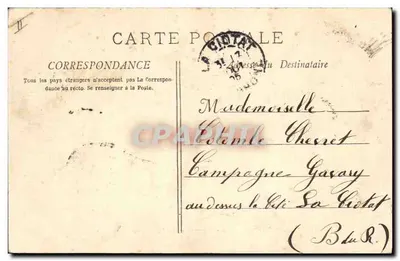 CARTE POSTALE
CORRESPONDANCE
Tous les pays étrangers n'acceptent pas la Correspon-
dance au recto. Se renseigner à la Poste.
LA CIOTAT
du Destinataire
Mademoiselle
Colombe Chevret
Campagne Gavary
au dessus la Cité La Ciotat
(B du R.)